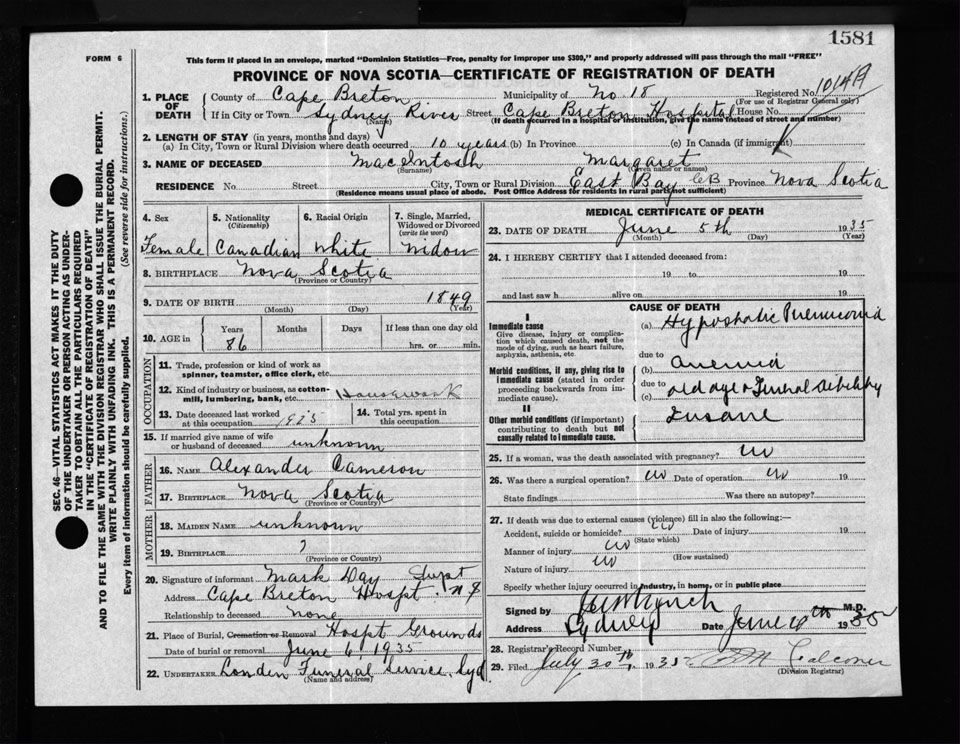 1581
FORM 6
This form if placed in an envelope, marked "Dominion Statistics—Free, penalty for improper use $300," and properly addressed will pass through the mail "FREE"
PROVINCE OF NOVA SCOTIA—CERTIFICATE OF REGISTRATION OF DEATH
1. PLACE OF DEATH
County of Cape Breton Municipality of No 18 Registered No.
(For use of Registrar General only)
If in City or Town Sydney River Street Cape Breton Hospital House No.
(Name) (If death occurred in a hospital or institution, give the name instead of street and number)
2. LENGTH OF STAY (in years, months and days)
(a) In City, Town or Rural Division where death occurred 10 years (b) In Province (c) In Canada (if immigrant)
3. NAME OF DECEASED MacIntosh Margaret
(Surname) (Given name or names)
RESIDENCE No. Street City, Town or Rural Division East Bay CB Province Nova Scotia
(Residence means usual place of abode. Post Office Address for residents in rural parts not sufficient)
4. Sex Female
5. Nationality (Citizenship) Canadian
6. Racial Origin White
7. Single, Married, Widowed or Divorced (write the word) Widow
8. BIRTHPLACE Nova Scotia
(Province or Country)
9. DATE OF BIRTH 1849
(Month) (Day) (Year)
10. AGE in Years 86 Months Days If less than one day old hrs. or min.
OCCUPATION
11. Trade, profession or kind of work as spinner, teamster, office clerk, etc.
12. Kind of industry or business, as cotton-mill, lumbering, bank, etc. Housework
13. Date deceased last worked at this occupation 1925
14. Total yrs. spent in this occupation
15. If married give name of wife or husband of deceased unknown
FATHER
16. NAME Alexander Cameron
17. BIRTHPLACE Nova Scotia
(Province or Country)
MOTHER
18. MAIDEN NAME unknown
19. BIRTHPLACE ?
(Province or Country)
20. Signature of informant Mark Day Supt
Address Cape Breton Hospt. N S
Relationship to deceased none
21. Place of Burial, Cremation or Removal Hospt Grounds
Date of burial or removal June 6, 1935
22. UNDERTAKER Londen Funeral Service, Syd
(Name and address)
MEDICAL CERTIFICATE OF DEATH
23. DATE OF DEATH June 5th 1935
(Month) (Day) (Year)
24. I HEREBY CERTIFY that I attended deceased from:
19 to 19
and last saw h alive on 19
CAUSE OF DEATH
I
Immediate cause
Give disease, injury or complication which caused death, not the mode of dying, such as heart failure, asphyxia, asthenia, etc
(a) Hypostatic Pneumonia
due to
Morbid conditions, if any, giving rise to immediate cause (stated in order proceeding backwards from immediate cause).
(b) Anemia
due to
(c) old age & General debility
II
Other morbid conditions (if important) contributing to death but not causally related to immediate cause.
Insane
25. If a woman, was the death associated with pregnancy? no
26. Was there a surgical operation? no Date of operation no 19
State findings Was there an autopsy?
27. If death was due to external causes (violence) fill in also the following:—
Accident, suicide or homicide? no Date of injury 19
(State which)
Manner of injury no
(How sustained)
Nature of injury no
Specify whether injury occurred in industry, in home, or in public place
Signed by Lynch M.D.
Address Sydney Date June 6th 1935
28. Registrar's Record Number
29. Filed July 30th 1935 Falconer
(Division Registrar)
SEC. 46—VITAL STATISTICS ACT MAKES IT THE DUTY
OF THE UNDERTAKER OR PERSON ACTING AS UNDER-
TAKER TO OBTAIN ALL THE PARTICULARS REQUIRED
IN THE "CERTIFICATE OF REGISTRATION OF DEATH"
AND TO FILE THE SAME WITH THE DIVISION REGISTRAR WHO SHALL ISSUE THE BURIAL PERMIT.
WRITE PLAINLY WITH UNFADING INK. THIS IS A PERMANENT RECORD.
Every item of information should be carefully supplied. (See reverse side for instructions.)